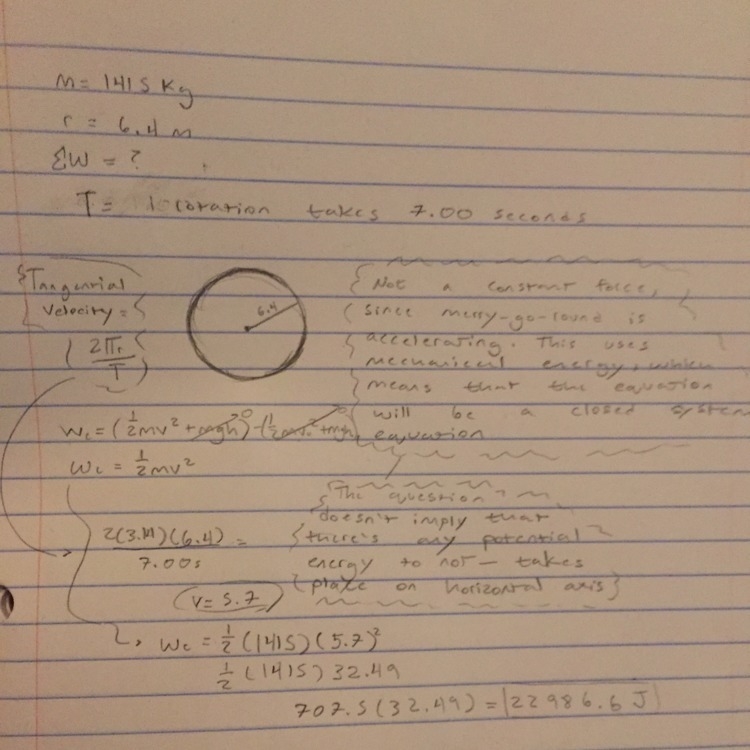 M = 1415 Kg
r = 6.4 m
ΣW = ?
T = 1 rotation takes 7.00 seconds
Tangenrial
velocity =
2πr
T
6.4
Not a constant force,
since merry-go-round is
accelerating. This uses
mechanical energy, which
means that the equation
will be a closed system
equation
Wc = (½mv² + mgh)⁰ - (½mv² + mgh)⁰
Wc = ½mv²
The question
doesn't imply that
there's any potential
energy to not - takes
place on horizontal axis
2(3.14)(6.4) =
7.00s
V = 5.7
Wc = ½ (1415)(5.7)²
½ (1415) 32.49
707.5(32.49) = 22986.6 J